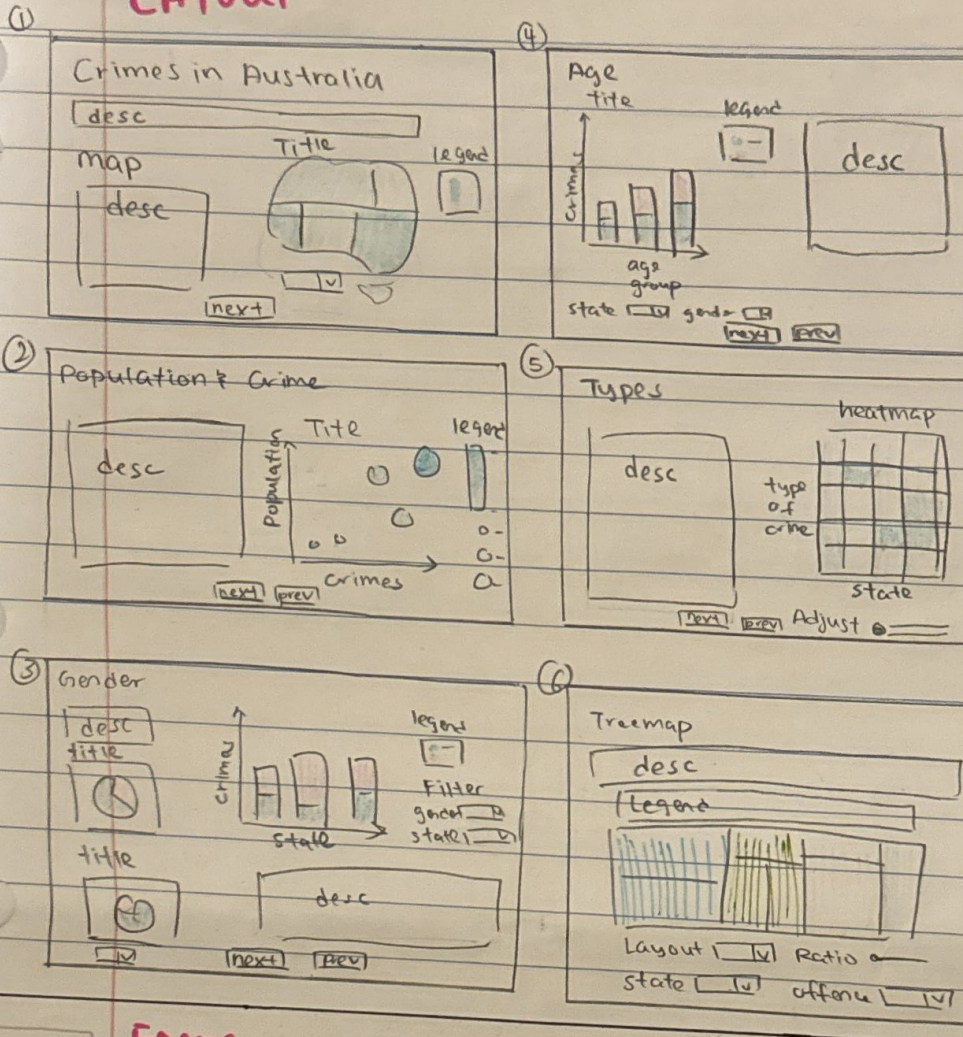 Layout
①
Crimes in Australia
desc
map
desc
Title
legend
next
②
Population & Crime
desc
Title
legend
Population
Crimes
next prev
③
Gender
desc
title
title
Crimes
state
legend
Filter
gender
state
desc
next prev
④
Age
tite
legend
desc
Crimes
age
group
state gender
next prev
⑤
Types
desc
heatmap
type
of
crime
state
next prev Adjust
⑥
Treemap
desc
Legend
Layout Ratio
state offence